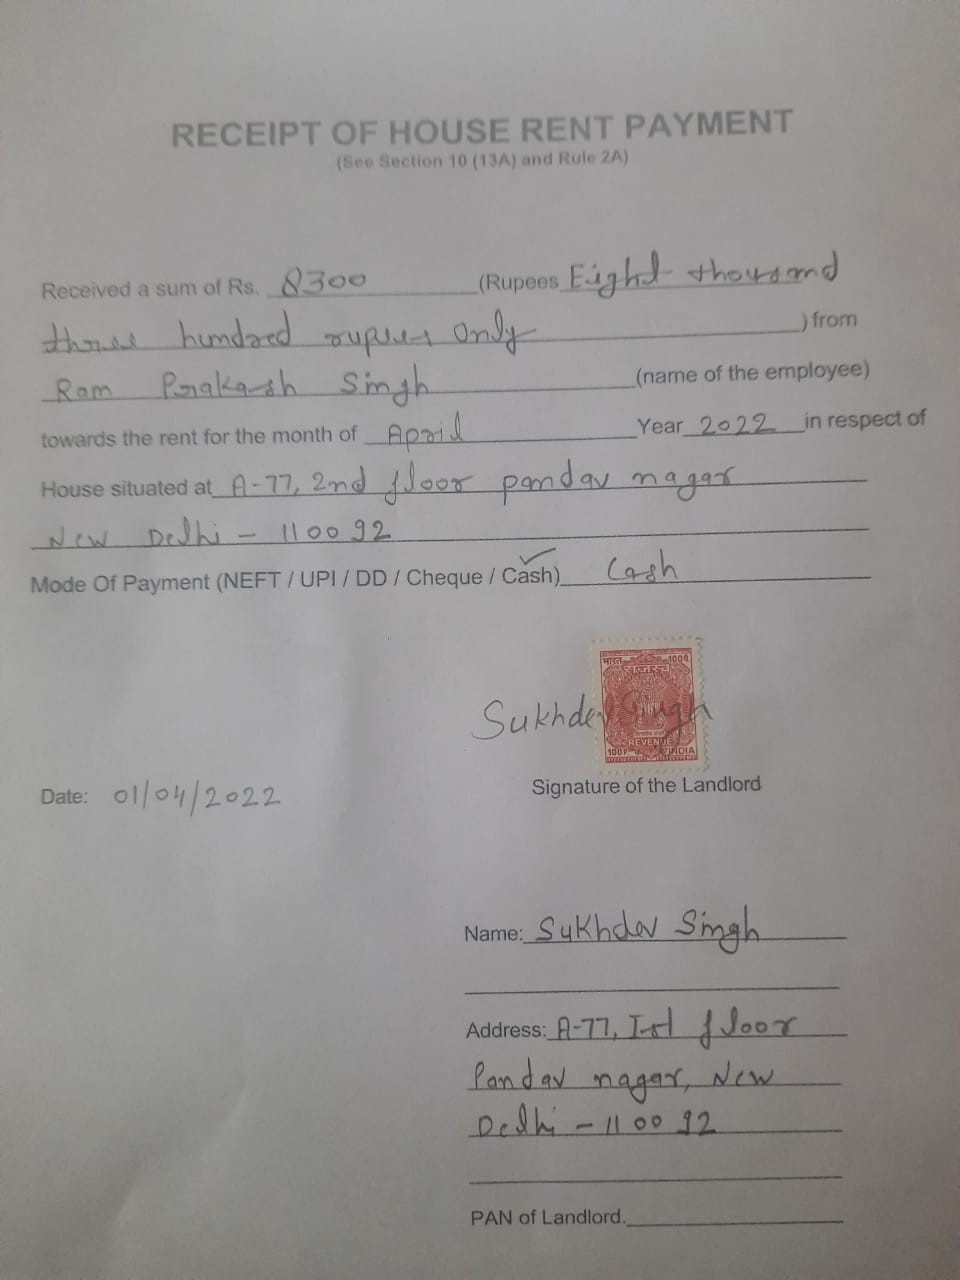 RECEIPT OF HOUSE RENT PAYMENT
(See Section 10 (13A) and Rule 2A)
Received a sum of Rs. 8300 (Rupees Eight thousand
three hundred rupees only ) from
Ram Prakash Singh (name of the employee)
towards the rent for the month of April Year 2022 in respect of
House situated at A-77, 2nd floor pandav nagar
New Delhi - 110092
Mode Of Payment (NEFT / UPI / DD / Cheque / Cash) Cash
भारत 100प
राजस्व
Sukhdev Singh
REVENUE
100P INDIA
Signature of the Landlord
Date: 01/04/2022
Name: Sukhdev Singh
Address: A-77, Ist floor
Pandav nagar, New
Delhi - 110092
PAN of Landlord.